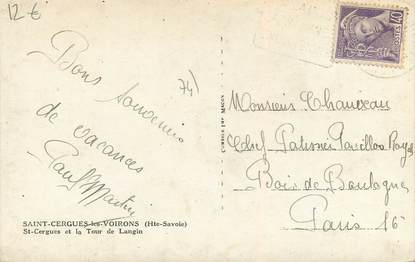 12 €
74)
Bons souvenirs
de vacances
Paul Martin
SAINT-CERGUES-les-VOIRONS (Hte-Savoie)
St-Cergues et la Tour de Langin
Monsieur Chauveau
Chef Patissier Pavillon Royal
Bois de Boulogne
Paris 16